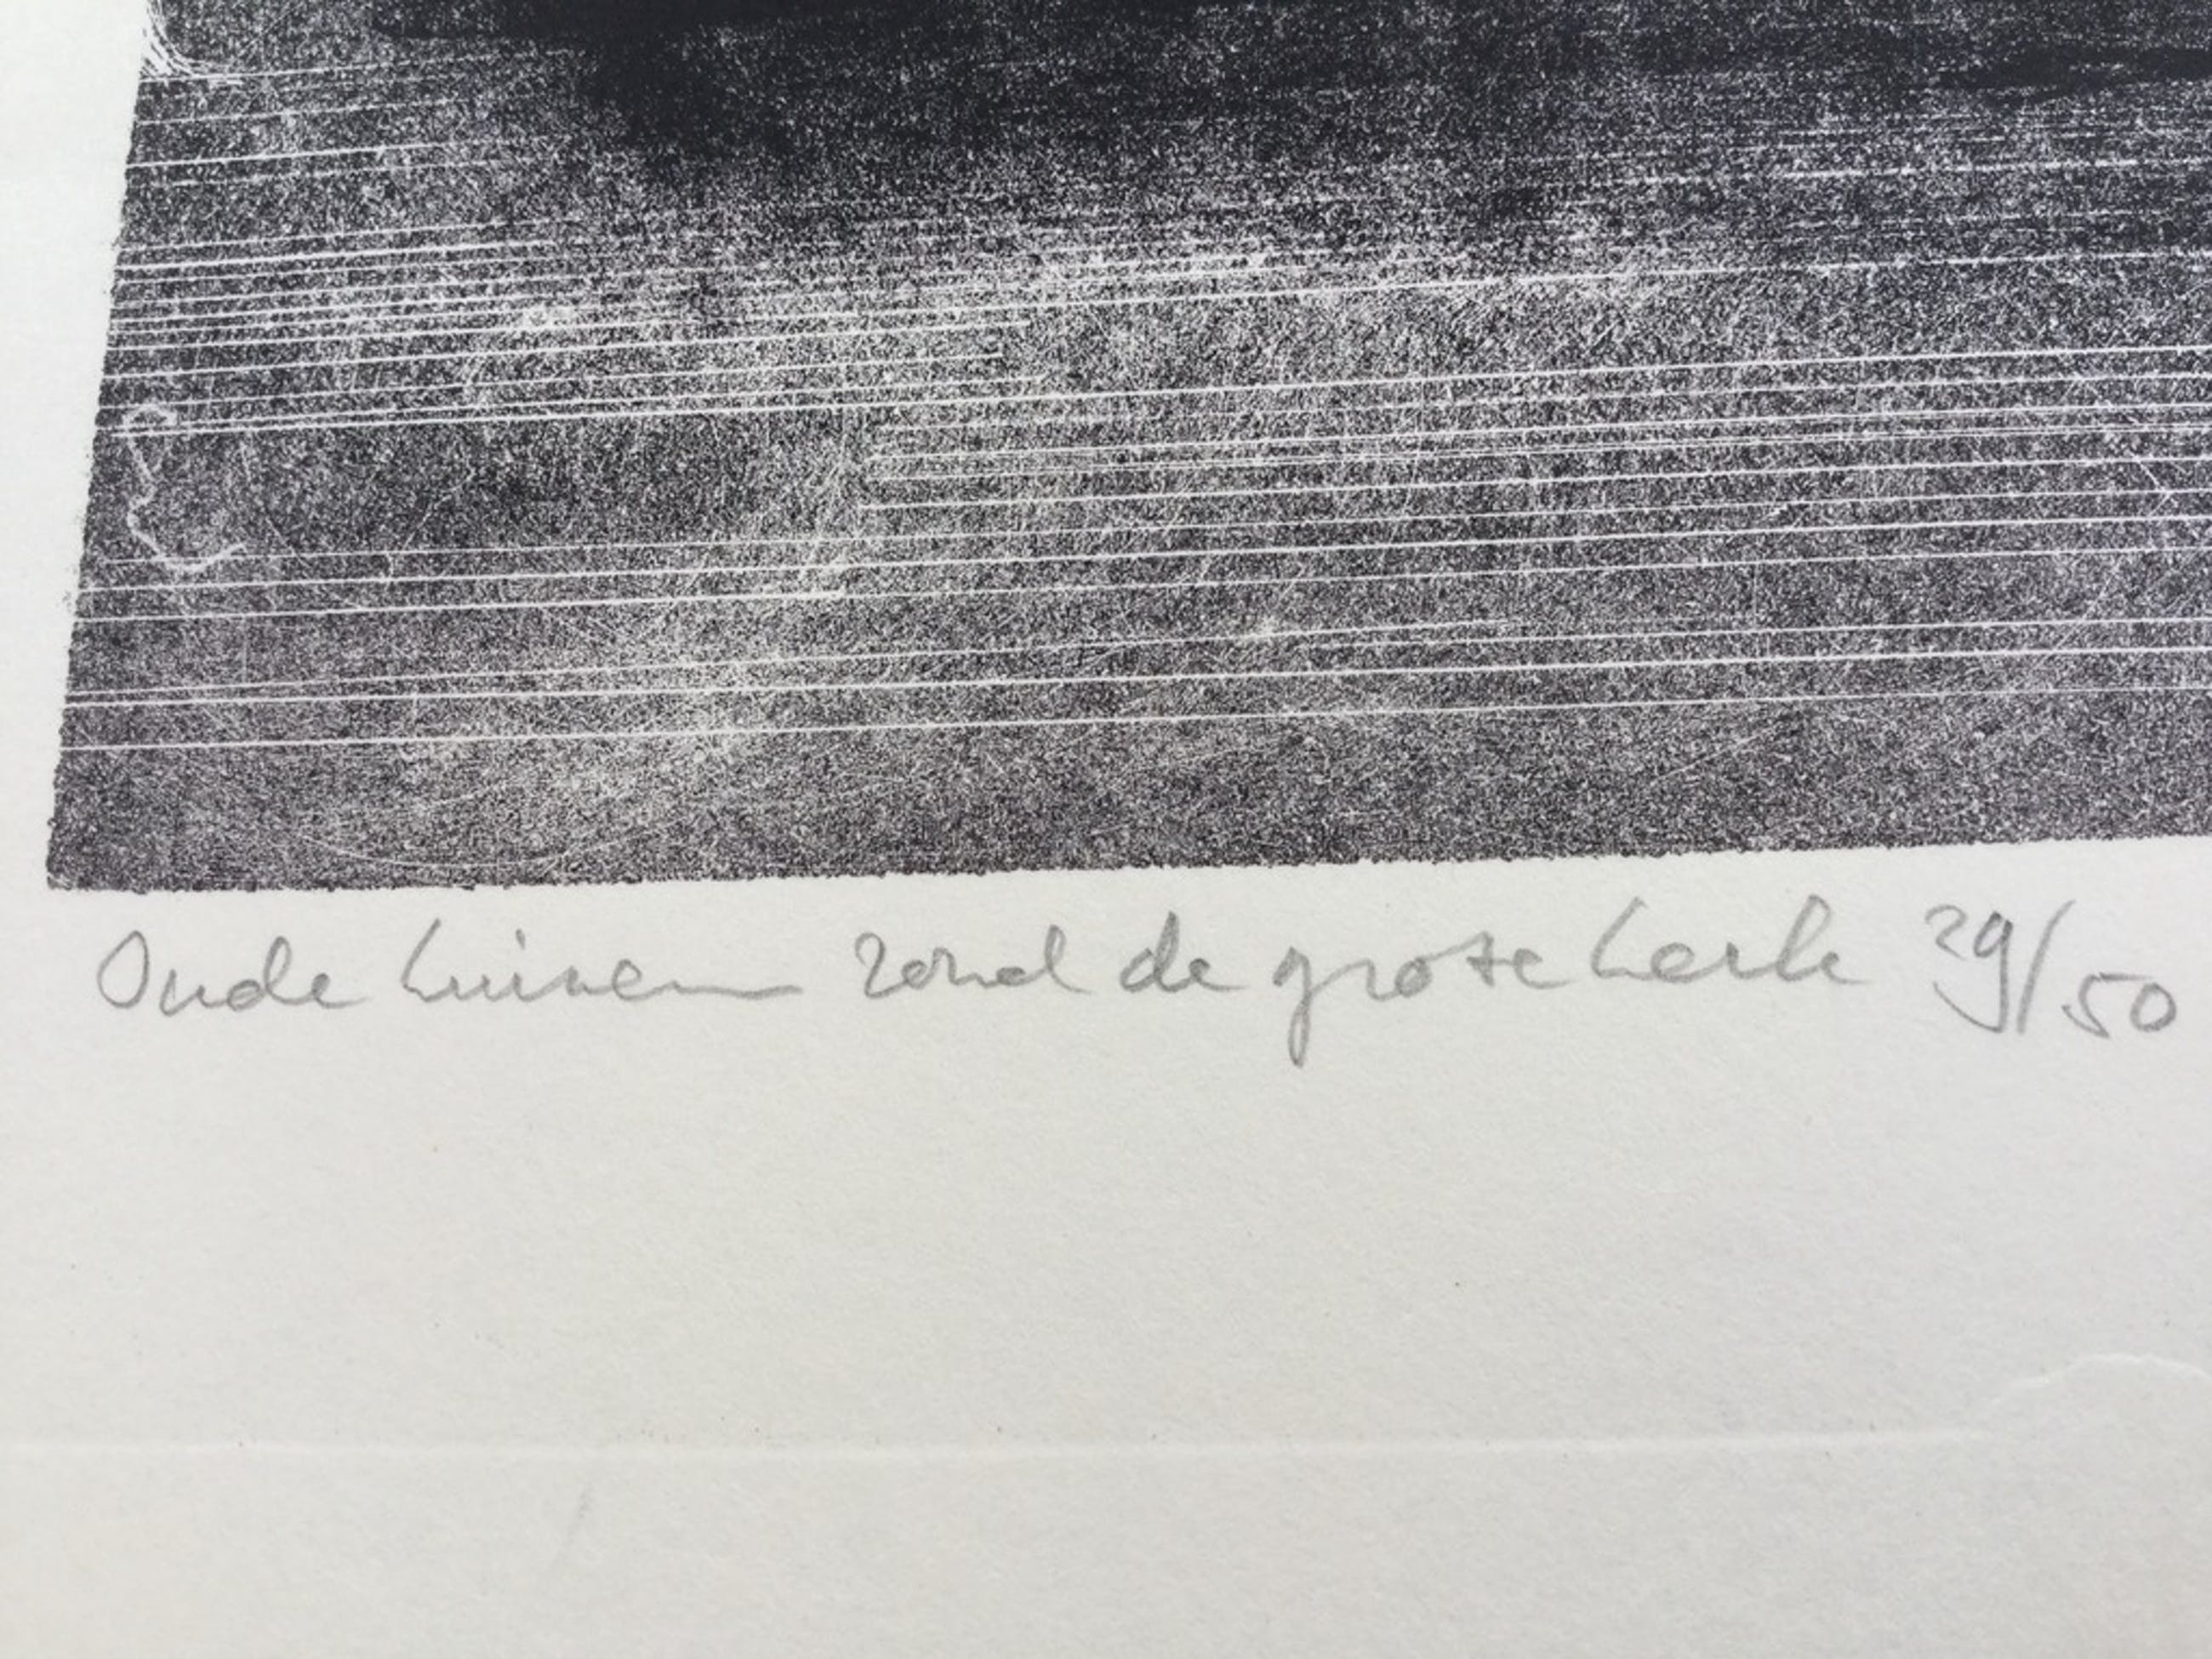 Oude huizen rond de grote kerk 29/50